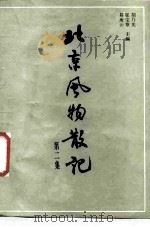 主编
北京风物散记
第二集